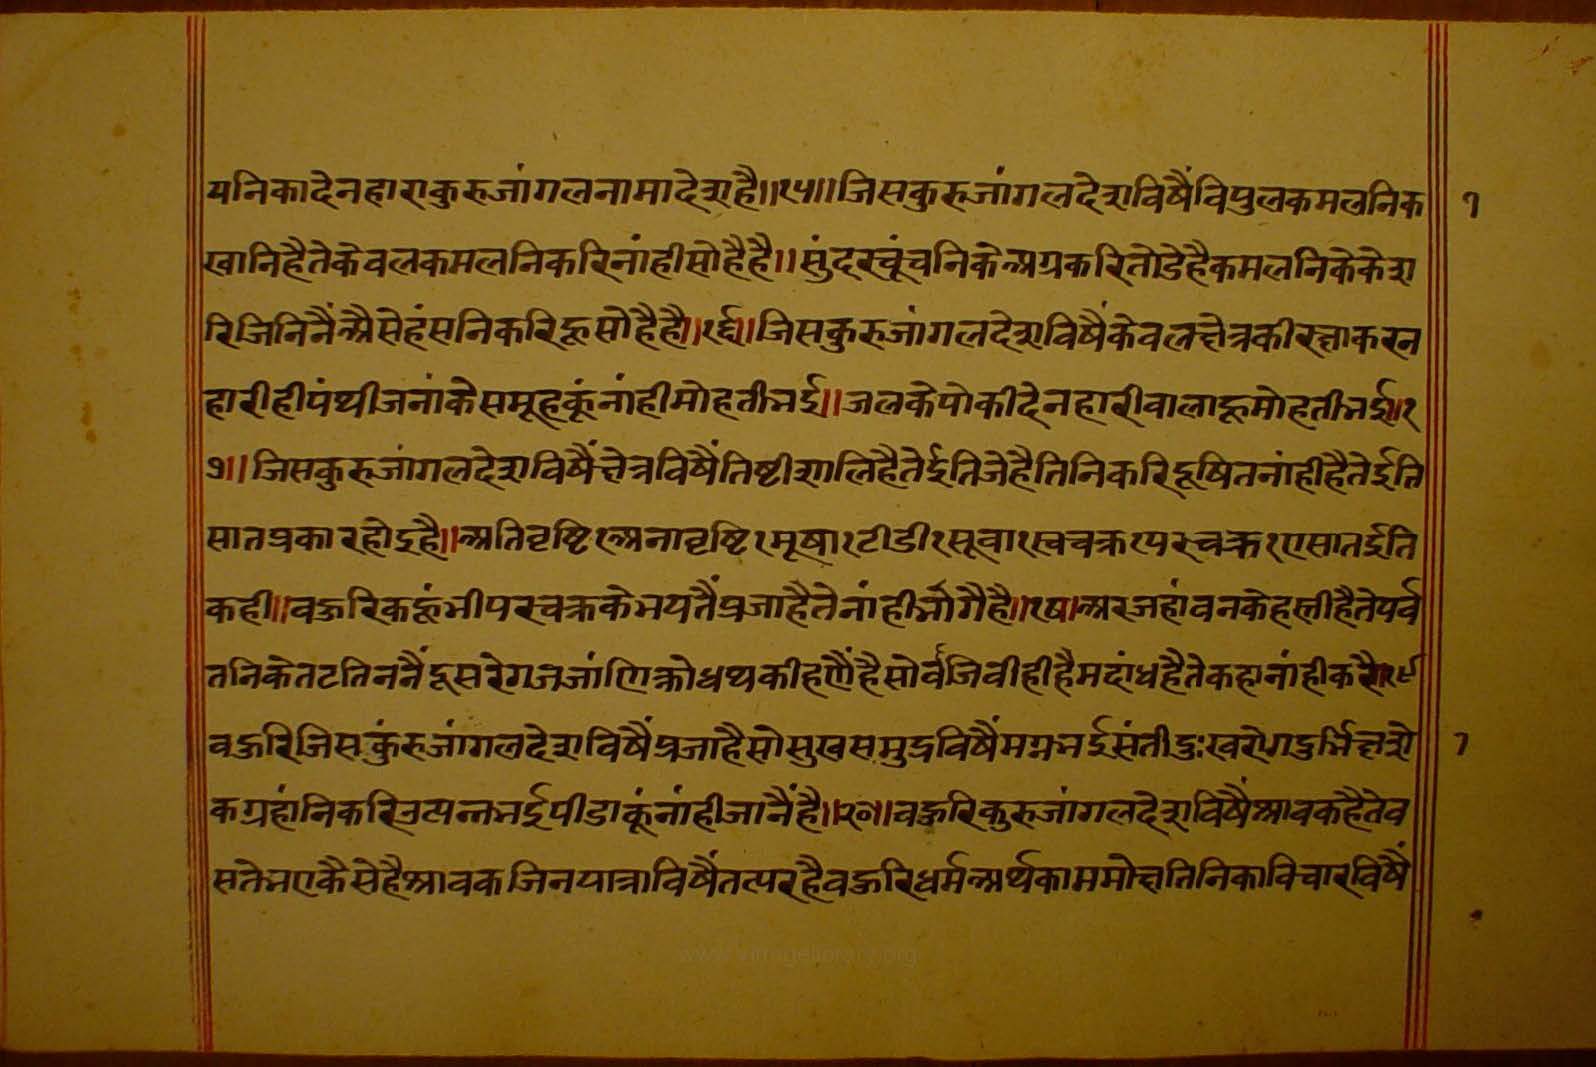 यनिकादेनहाराकुरुजांगलनामादेशहै॥१५॥जिसकुरुजांगलदेशविषैंविपुलकमलनिक १
खानिहैतेकेवलकमलनिकरिनांहीसोहैहै॥सुंदरचूंचनिकेअग्रकरितोडेहैकमलनिकेकेश
रिजिनिनैंअैसेहंसनिकरिहूसोहैहै॥१६॥जिसकुरुजांगलदेशविषैंकेवलक्षेत्रकीरक्षाकरन
हारीहीपंथीजनांकेसमूहकूंनांहीमोहतीभई॥जलकेपोकीदेनहारीवालाहूमोहतीभई॥१
७॥जिसकुरुजांगलदेशविषैंक्षेत्रविषैंतिष्टीशालिहैतेईतिजेहैतिनिकरिदूषितनांहीहैतेईति
सातप्रकारहोइहै॥अतिवृष्टि१अनावृष्टि१मूषा१टीडी१सूवा१स्वचक्र१परचक्र१एसातईति
कही॥वऊरिकहूंभीपरचक्रकेभयतैंप्रजाहैतेनांहीभागैहै॥१८॥अरजहांवनकेहस्तीहैतेपर्व
तनिकेतटतिननैंदूसरेगजजांणिक्रोधथकीहणैंहैसो
वऊरिजिसकुंरुजांगलदेशविषैंप्रजाहैसोसुखसमुद्रविषैंमग्नभईसंतीदुःखरोगदुर्भिक्षशो १
कग्रहांनिकरिउत्पन्नभईपीडाकूंनांहीजानैंहै॥२०॥वऊरिकुरुजांगलदेशविषैंश्रावकहैतेव
सतेभएकैसेहैश्रावकजिनयात्राविषैंतत्परहैवऊरिधर्मअर्थकाममोक्षतिनिकाविचारविषैं
www.vitragelibrary.org